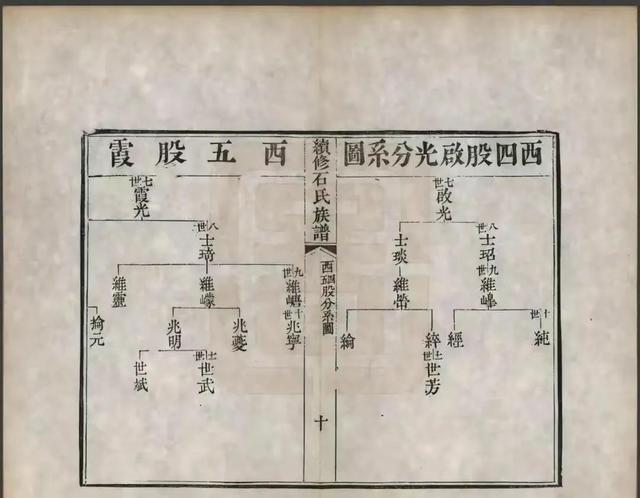 西四股啟光分系圖
七世
啟光
八世
士玿
九世
維峰
十世
純
經
士琰
維嵤
綷
十一世
世芳
綸
續修石氏族譜
西五四股分系圖
十
西五股霞
七世
霞光
八世
士琦
九世
維嵣
十世
兆寧
維嶸
兆夔
十一世
世武
兆明
世斌
維靈
掄元